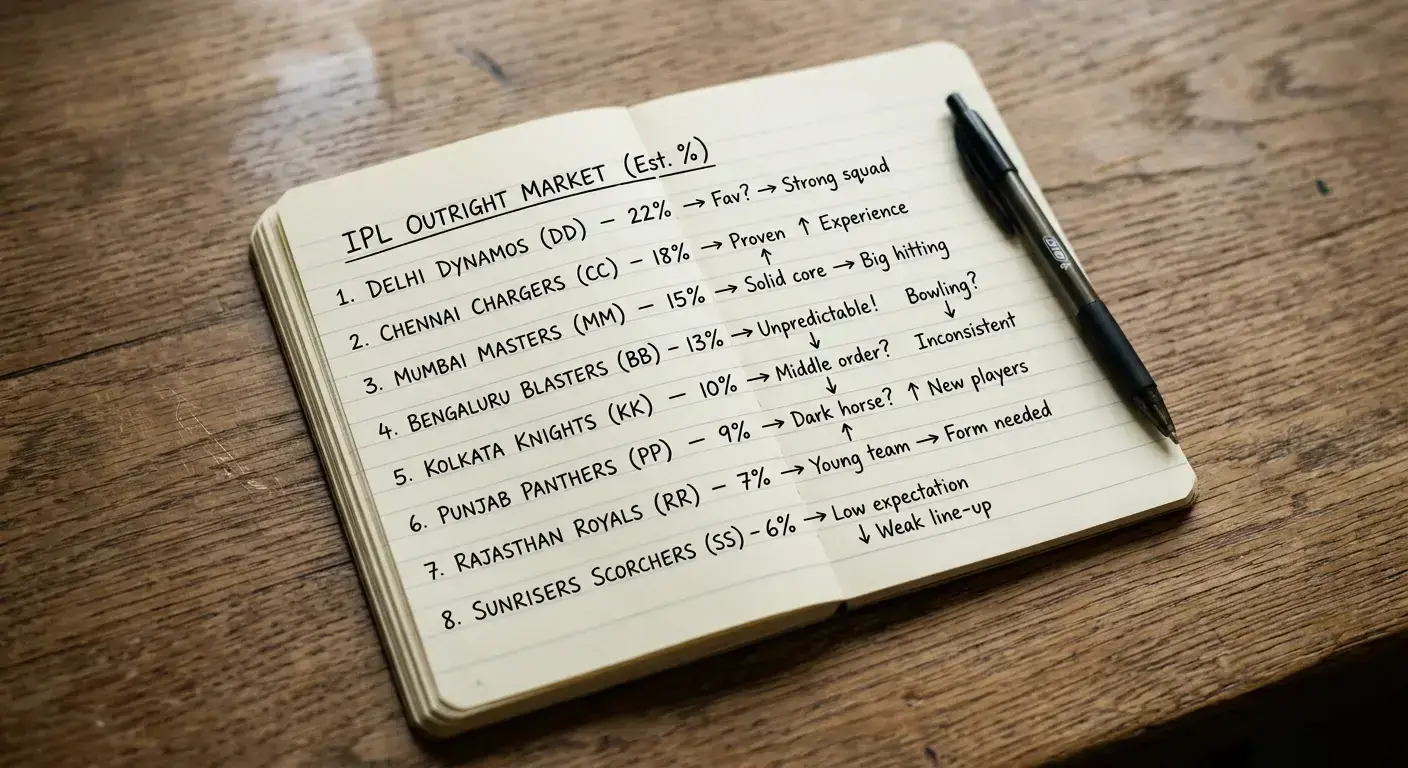 IPL OUTRIGHT MARKET (Est. %)
1. DELHI DYNAMOS (DD) – 22% → Fav? → Strong squad
2. CHENNAI CHARGERS (CC) – 18% → Proven ↑ Experience
↑
3. MUMBAI MASTERS (MM) – 15% → Solid core → Big hitting
4. BENGALURU BLASTERS (BB) – 13% → Unpredictable! Bowling?
↓ ↓
5. KOLKATA KNIGHTS (KK) – 10% → Middle order? Inconsistent
↓
6. PUNJAB PANTHERS (PP) – 9% → Dark horse? ↑ New players
↑
7. RAJASTHAN ROYALS (RR) – 7% → Young team → Form needed
8. SUNRISERS SCORCHERS (SS) – 6% → Low expectation
↓ Weak line-up